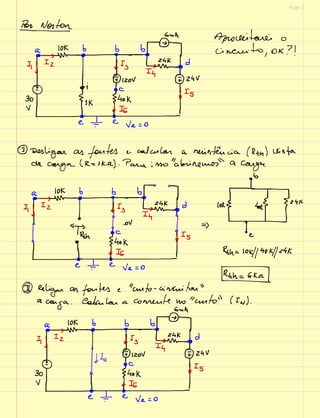 Page 2
Por Norton
6mA
Aproveitarei o
circuito, OK?!
a 10K b b b 24K d
I1 I2 I3 I4
i 120V 24V
c
30
V 1K 40K I5
I6
e e Ve=0
① Desligar as fontes e calcular a resistência (Rth) vista
da carga (R=1KΩ). Para isso "abriremos" a carga
a 10K b b b 24K d
I1 I2 I3 I4
Rth 0V
c
40K I5
I6
e e Ve=0
b
10K 40K 24K
⇒
Rth = 10K//40K//24K
Rth = 6KΩ
② Religar as fontes e "curto-circuitar"
a carga. Calcular a corrente no "curto" (IN).
6mA
a 10K b b b 24K d
I1 I2 I3 I4
120V 24V
c
30
V 40K I5
I6
e e Ve=0